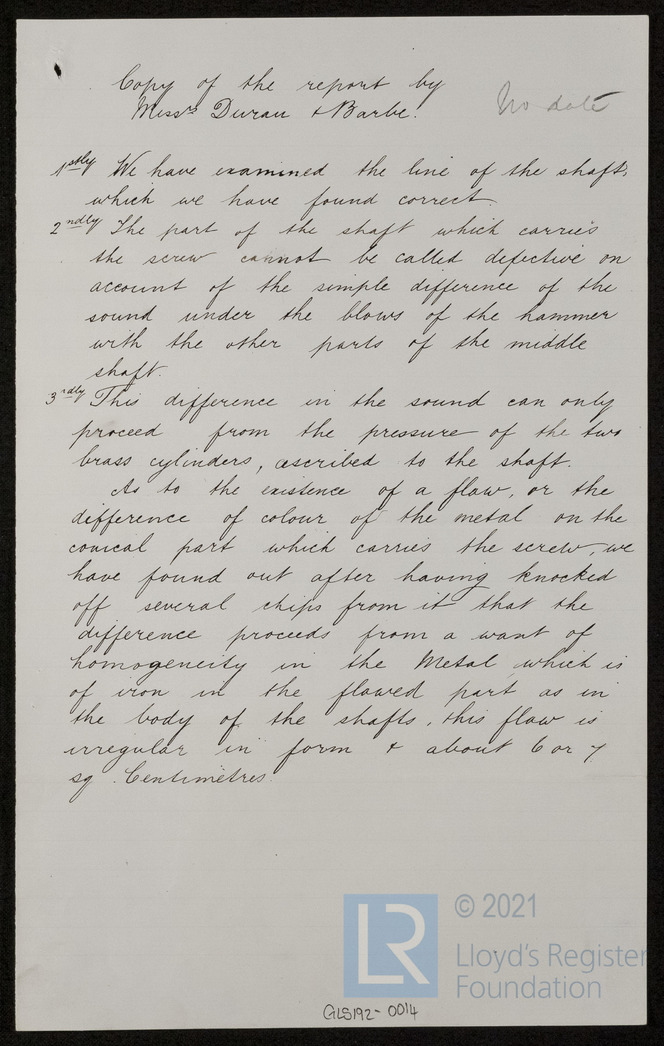 Copy of the report by
Messrs Duran & Barbe.
No date
1stly We have examined the line of the shafts,
which we have found correct.
2ndly The part of the shaft which carries
the screw cannot be called defective on
account of the simple difference of the
sound under the blows of the hammer
with the other parts of the middle
shaft.
3rdly This difference in the sound can only
proceed from the pressure of the two
brass cylinders, ascribed to the shaft.
As to the existence of a flaw, or the
difference of colour of the metal on the
conical part which carries the screw, we
have found out after having knocked
off several chips from it that the
difference proceeds from a want of
homogeneity in the Metal, which is
of iron in the flawed part as in
the body of the shafts, this flaw is
irregular in form & about 6 or 7
sq. Centimetres.
© 2021
LR
Lloyd's Register
Foundation
GLS192-0014